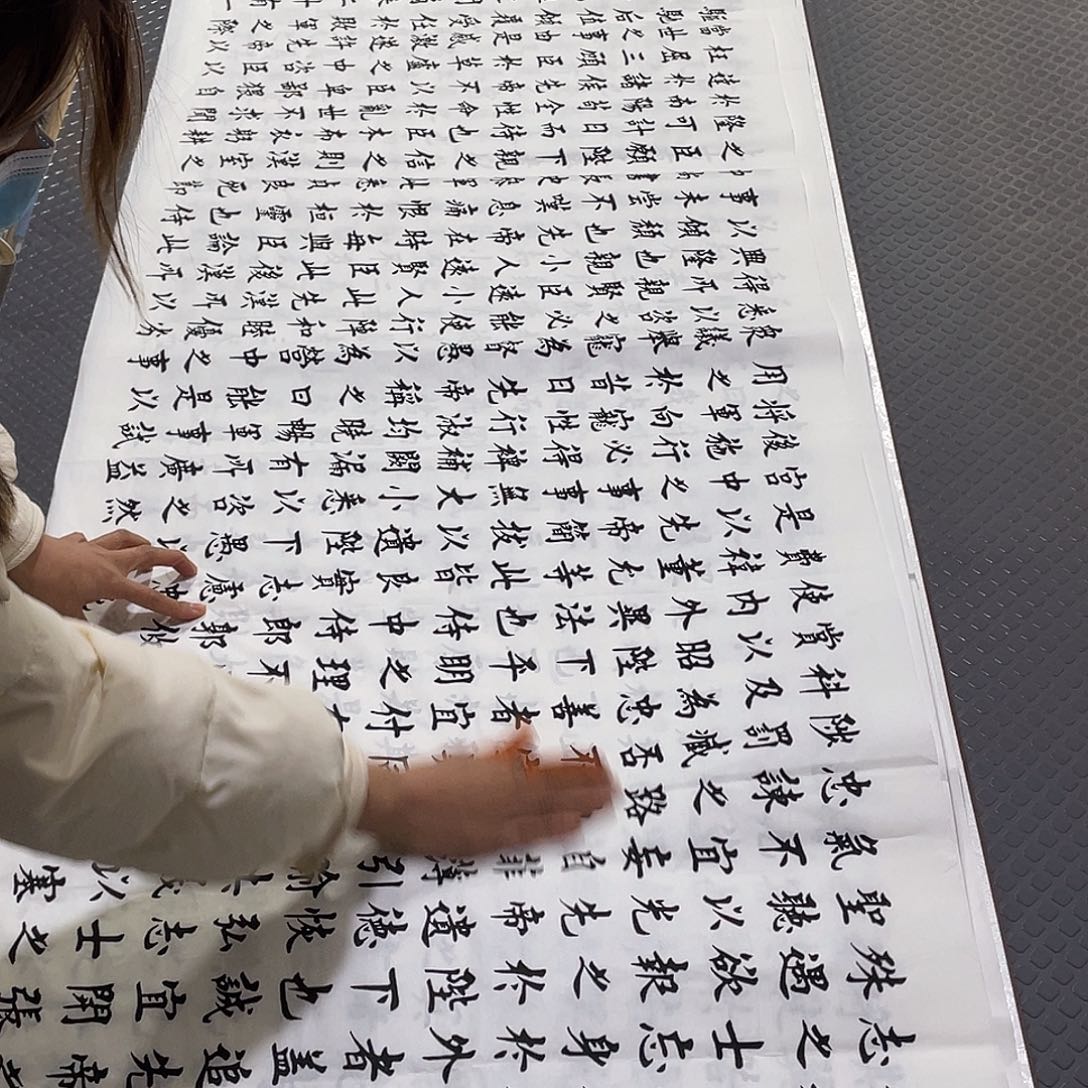 志之士忘身於外者蓋追先帝
殊遇欲報之於陛下也誠宜開張
聖聽以光先帝遺德恢弘志士之
氣不宜妄自菲薄引喻失以塞
忠諫之路
陟罰臧否不
科及為忠善者宜付
賞以昭陛下平明之理不
使內外異法也侍中侍郎郭攸
費禕董允等此皆良實志慮忠
是以先帝簡拔以遺陛下愚以
宮中之事事無大小悉以咨之然
後施行必得裨補闕漏有所廣益
將軍向寵性行淑均曉暢軍事試
用之於昔日先帝稱之曰能是以
衆議舉寵為督愚以為營中之事
悉以咨之必能使行陣和睦優劣
得所親賢臣遠小人此先漢所以
興隆也親小人遠賢臣此後漢所
以傾頹也先帝在時每與臣論此
事未嘗不嘆息痛恨於桓靈也侍
尚書長史參此悉貞良死節
之臣願陛下親之信之則漢室之
隆可計日而待也臣本布衣躬耕
於南陽苟全性命於亂世不求聞
達於諸侯先帝不以臣卑鄙猥自
枉屈三顧臣於草廬之中咨臣以
當世之事由是感激遂許先帝以